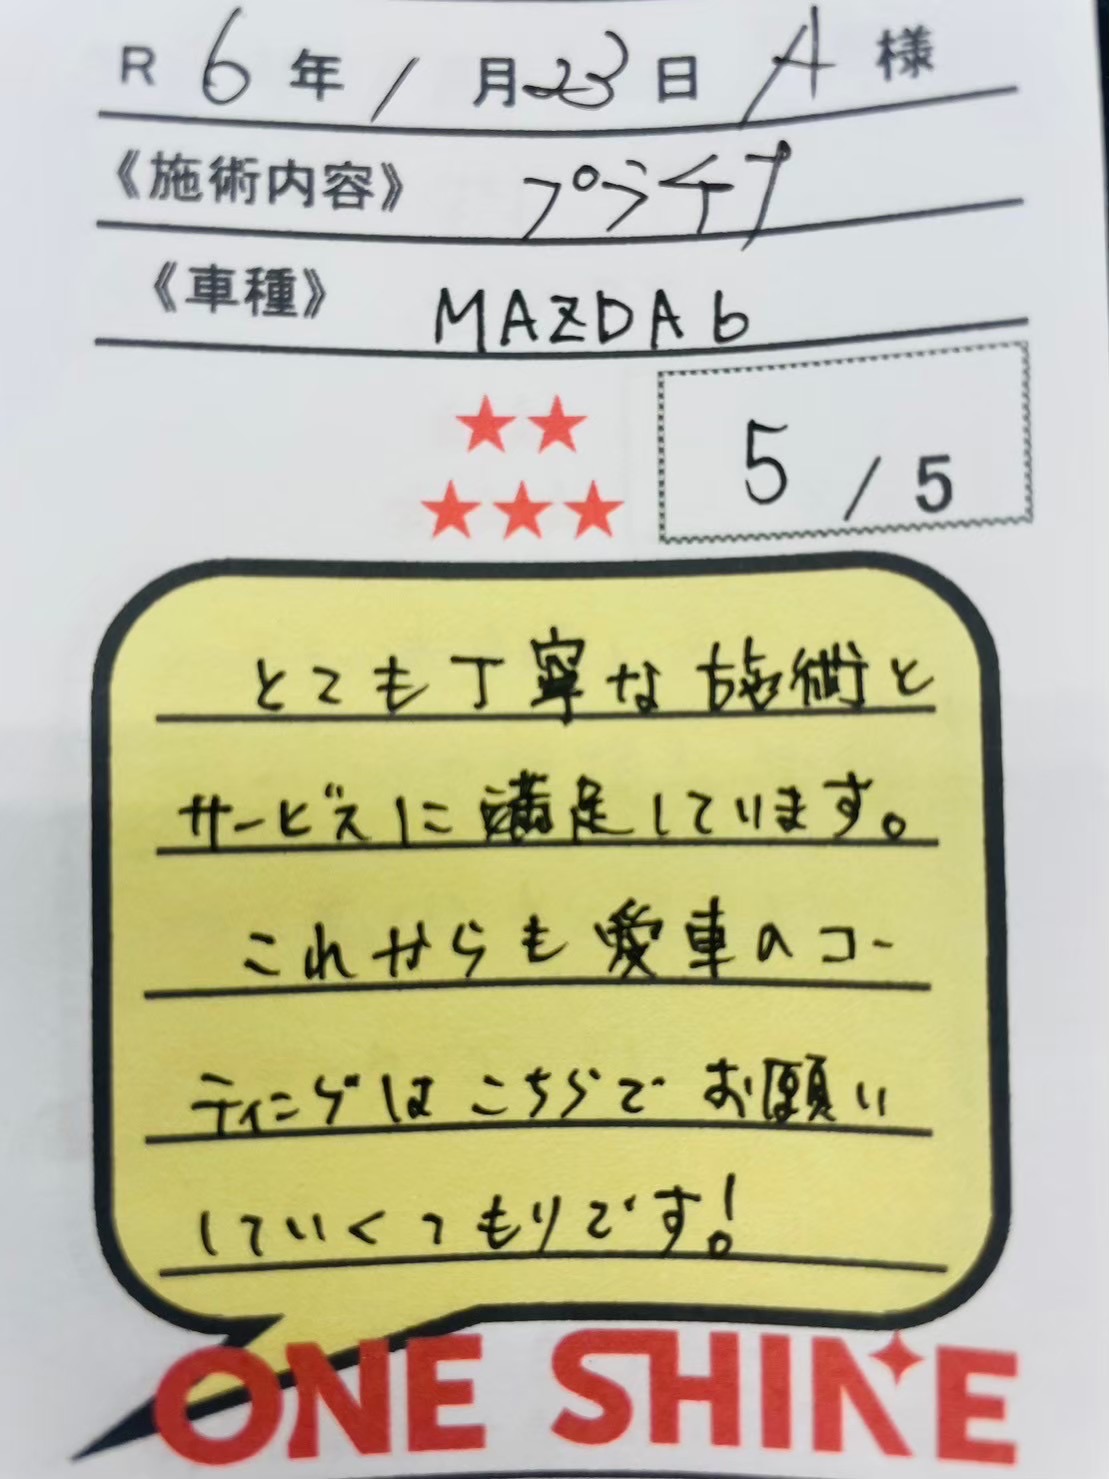 R 6年 1月23日 A 様
《施術内容》 プラチナ
《車種》 MAZDA6
5/5
とても丁寧な施術と
サービスに満足しています。
これからも愛車のコー
ティングはこちらでお願い
していくつもりです！
ONE SHINE